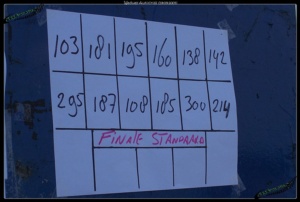 103 181 195 160 138 142
295 187 108 185 300 214
FINALE STANDARD